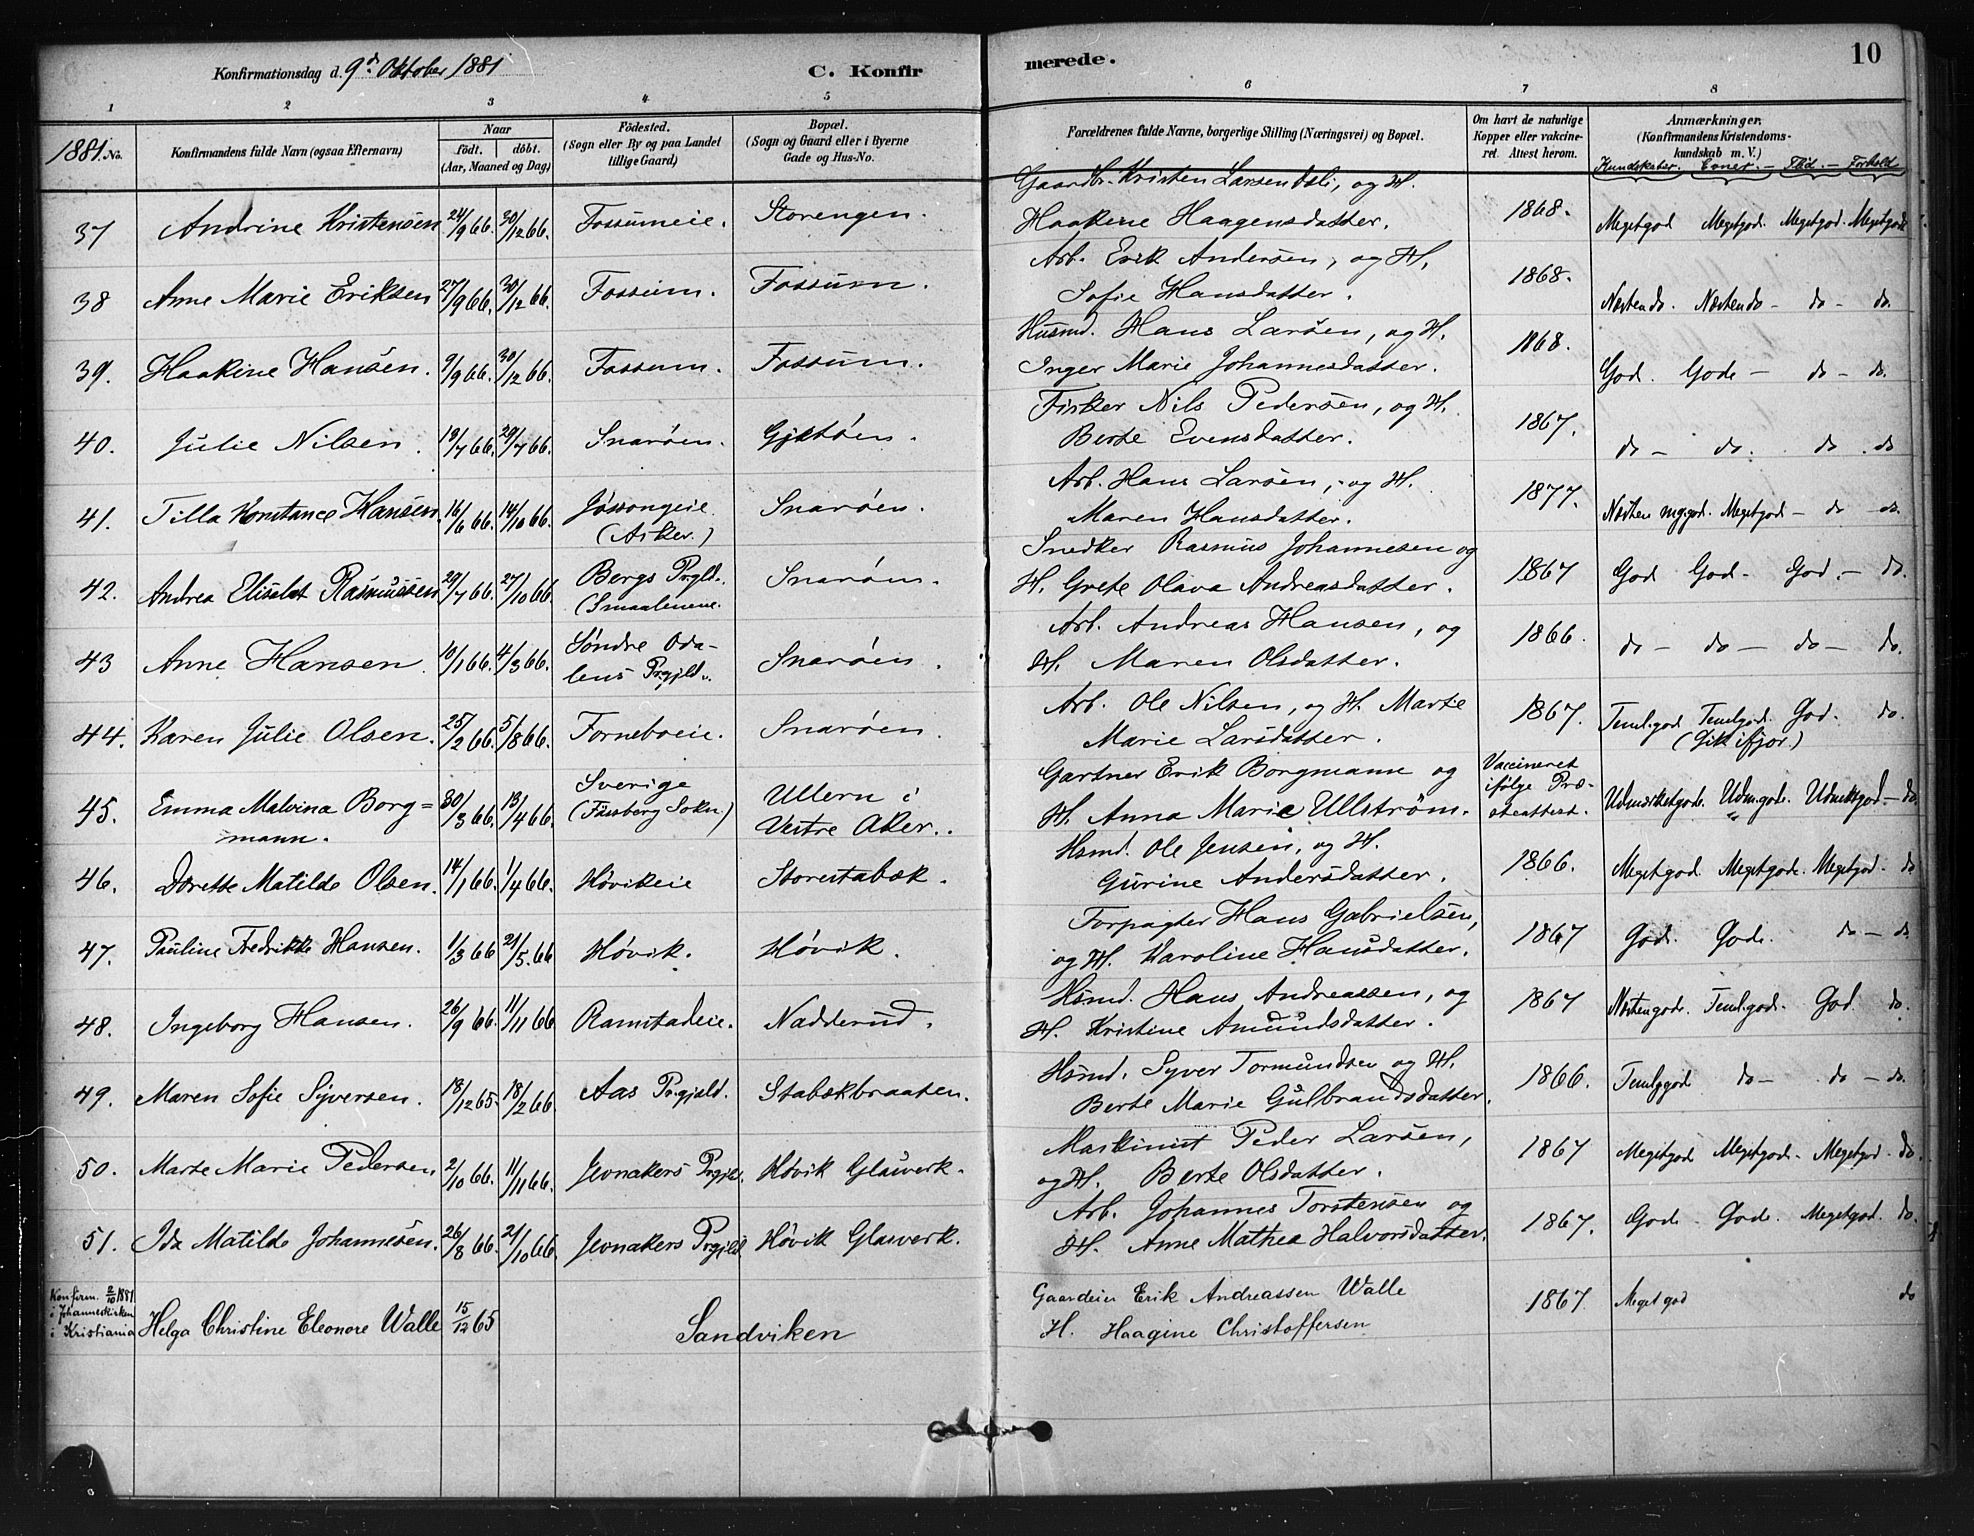 Konfirmationsdag d. 9de Oktober 1881 C. Konfir
merede. 10
1 2 3 4 5 6 7 8
1881. No. Konfirmandens fulde Navn (ogsaa Efternavn) Naar födt. döbt. (Aar, Maaned og Dag) Födested. (Sogn eller By og paa Landet tillige Gaard) Bopæl. (Sogn og Gaard eller i Byerne Gade og Hus-No.
Forældrenes fulde Navne, borgerlige Stilling (Næringsvei) og Bopæl. Om havt de naturlige Kopper eller vakcineret. Attest herom. Anmærkninger. (Konfirmandens Kristendomskundskab m. V.) Kundskaber. Evner. — Flid. — Forhold
37 Andrine Kristensen 24/9 66. 30/12 66. Fossumeie. Storengen. Gaardbr. Kristen Larsen, og H. Haakine Haagensdatter. 1868. Megetgod Megetgod. Megetgod. Megetgodt
38 Anne Marie Eriksen 27/9 66. 30/12 66. Fossum. Fossum. Arb. Erik Andersen, og H. Sofie Hansdatter. 1868. Næsten do. Næsten do — do — do.
39. Haakine Hansen. 9/9 66. 30/12 66. Fossum. Fossum. Husmd. Hans Larsen, og H. Inger Marie Johannesdatter. 1868. God. Gode — do — do.
40. Julie Nilsen. 19/7 66. 29/7 66. Snarøen. Fisker Nils Pedersen, og H. Berte Evensdatter. 1867. do — do. do . do
41. Tilla Konstance Hansen. 16/6 66. 14/10 66. Jøssongeie (Asker.) Snarøen. Arb. Hans Larsen, og H. Maren Hansdatter. 1877. Næsten mg.god. Megetgod — do — do.
42. Andrea Elisabet Rasmussen 29/7 66. 27/10 66. Bergs Prgld. (Smaalenene. Snarøen. Snedker Rasmus Johannesen og H. Grete Olava Andreasdatter. 1867 God God — God. — do.
43 Anne Hansen. 10/1 66. 4/3 66. Søndre Odalens Prgjld. Snarøen. Arb. Andreas Hansen, og H. Maren Olsdatter. 1866. do — do — do — do.
44. Karen Julie Olsen. 25/2 66. 5/8 66. Forneboeie. Snarøen. Arb. Ole Nilsen, og H. Marte Marie Larsdatter. 1867. Teml.god Temlgod. God. do. (Gik ifjor.)
45. Emma Malvina Borgmann. 30/3 66. 13/4 66. Sverige (Fässberg Sokn.) Ullern i Vestre Aker. Gartner Erik Borgmann og H. Anna Marie Ullstrøm. Vaccineret ifølge Præsteattest. Udmærketgode. Udm.god. Udmærktgod — do
46. Dorette Matilde Olsen. 14/1 66. 1/4 66. Høvikeie Storestabæk. Hsmd. Ole Jensen, og H. Gurine Andersdatter. 1866. Megetgod. Megetgode. Megetgod — do
47. Pauline Fredrikke Hansen. 1/3 66 21/5. 66 Høvik. Høvik. Forpagter Hans Gabrielsen, og H. Karoline Hansdatter. 1867 Gode. Gode. do — do
48. Ingeborg Hansen. 26/9 66. 11/11 66 Ramstadeie. Nadderud. Hsmd. Hans Andreassen, og H. Kristine Amundsdatter. 1867 Næstengode. Teml.gode. God. do.
49. Maren Sofie Syversen. 18/12 65. 18/2 66. Aas Prgjæld. Stabækbraaten. Hsmd. Syver Tormundsen og H. Berte Marie Gulbrandsdatter. 1866. Temlggod do — do — do.
50. Marte Marie Pedersen 2/10 66. 11/11 66. Jevnakers Prgjld. Høvik Glasverk. Maskinist Peder Larsen, og H. Berte Olsdatter. 1867 Megetgode Megetgode. Megetgod. do.
51. Ida Matilde Johannesen. 26/8 66. 21/10 66. Jevnakers Prgjld Høvik Glasverk. Arb. Johannes Torstensen og H. Anne Mathea Halvorsdatter. 1867. Gode. Gode. Megetgod. do.
Konfirm. 2/10 1881 i Johanneskirken i Kristiania Helga Christine Eleonore Walle 15/12 65 Sandviken Gaardeier Erik Andreassen Walle H. Haagine Christoffersen 1867. Meget god do